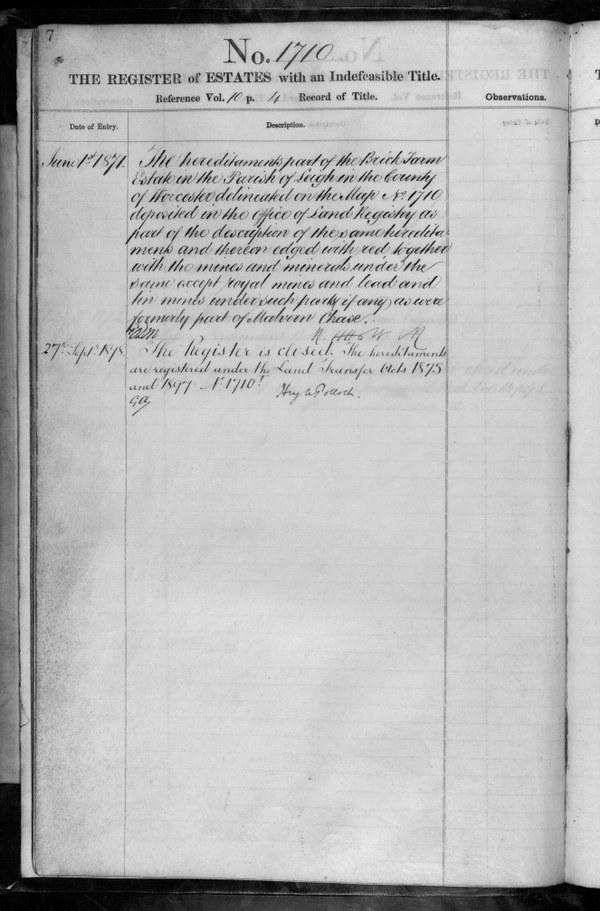 7
No. 1710
THE REGISTER of ESTATES with an Indefeasible Title.
Reference Vol. 10 p. 4 Record of Title.
Observations.
Date of Entry.
Description.
June 1st 1871.
The hereditaments part of the Brick Farm
Estate in the Parish of Leigh in the County
of Worcester delineated on the Map No. 1710
deposited in the Office of Land Registry as
part of the description of the same heredita-
ments and thereon edged with red together
with the mines and minerals under the
same except royal mines and lead and
tin mines under such parts (if any) as were
formerly part of Malvern Chase.
27th Sept. 1898.
The Register is closed. The hereditaments
are registered under the Land Transfer Acts 1875
and 1897 No. 1710.
Hry W Pollock.